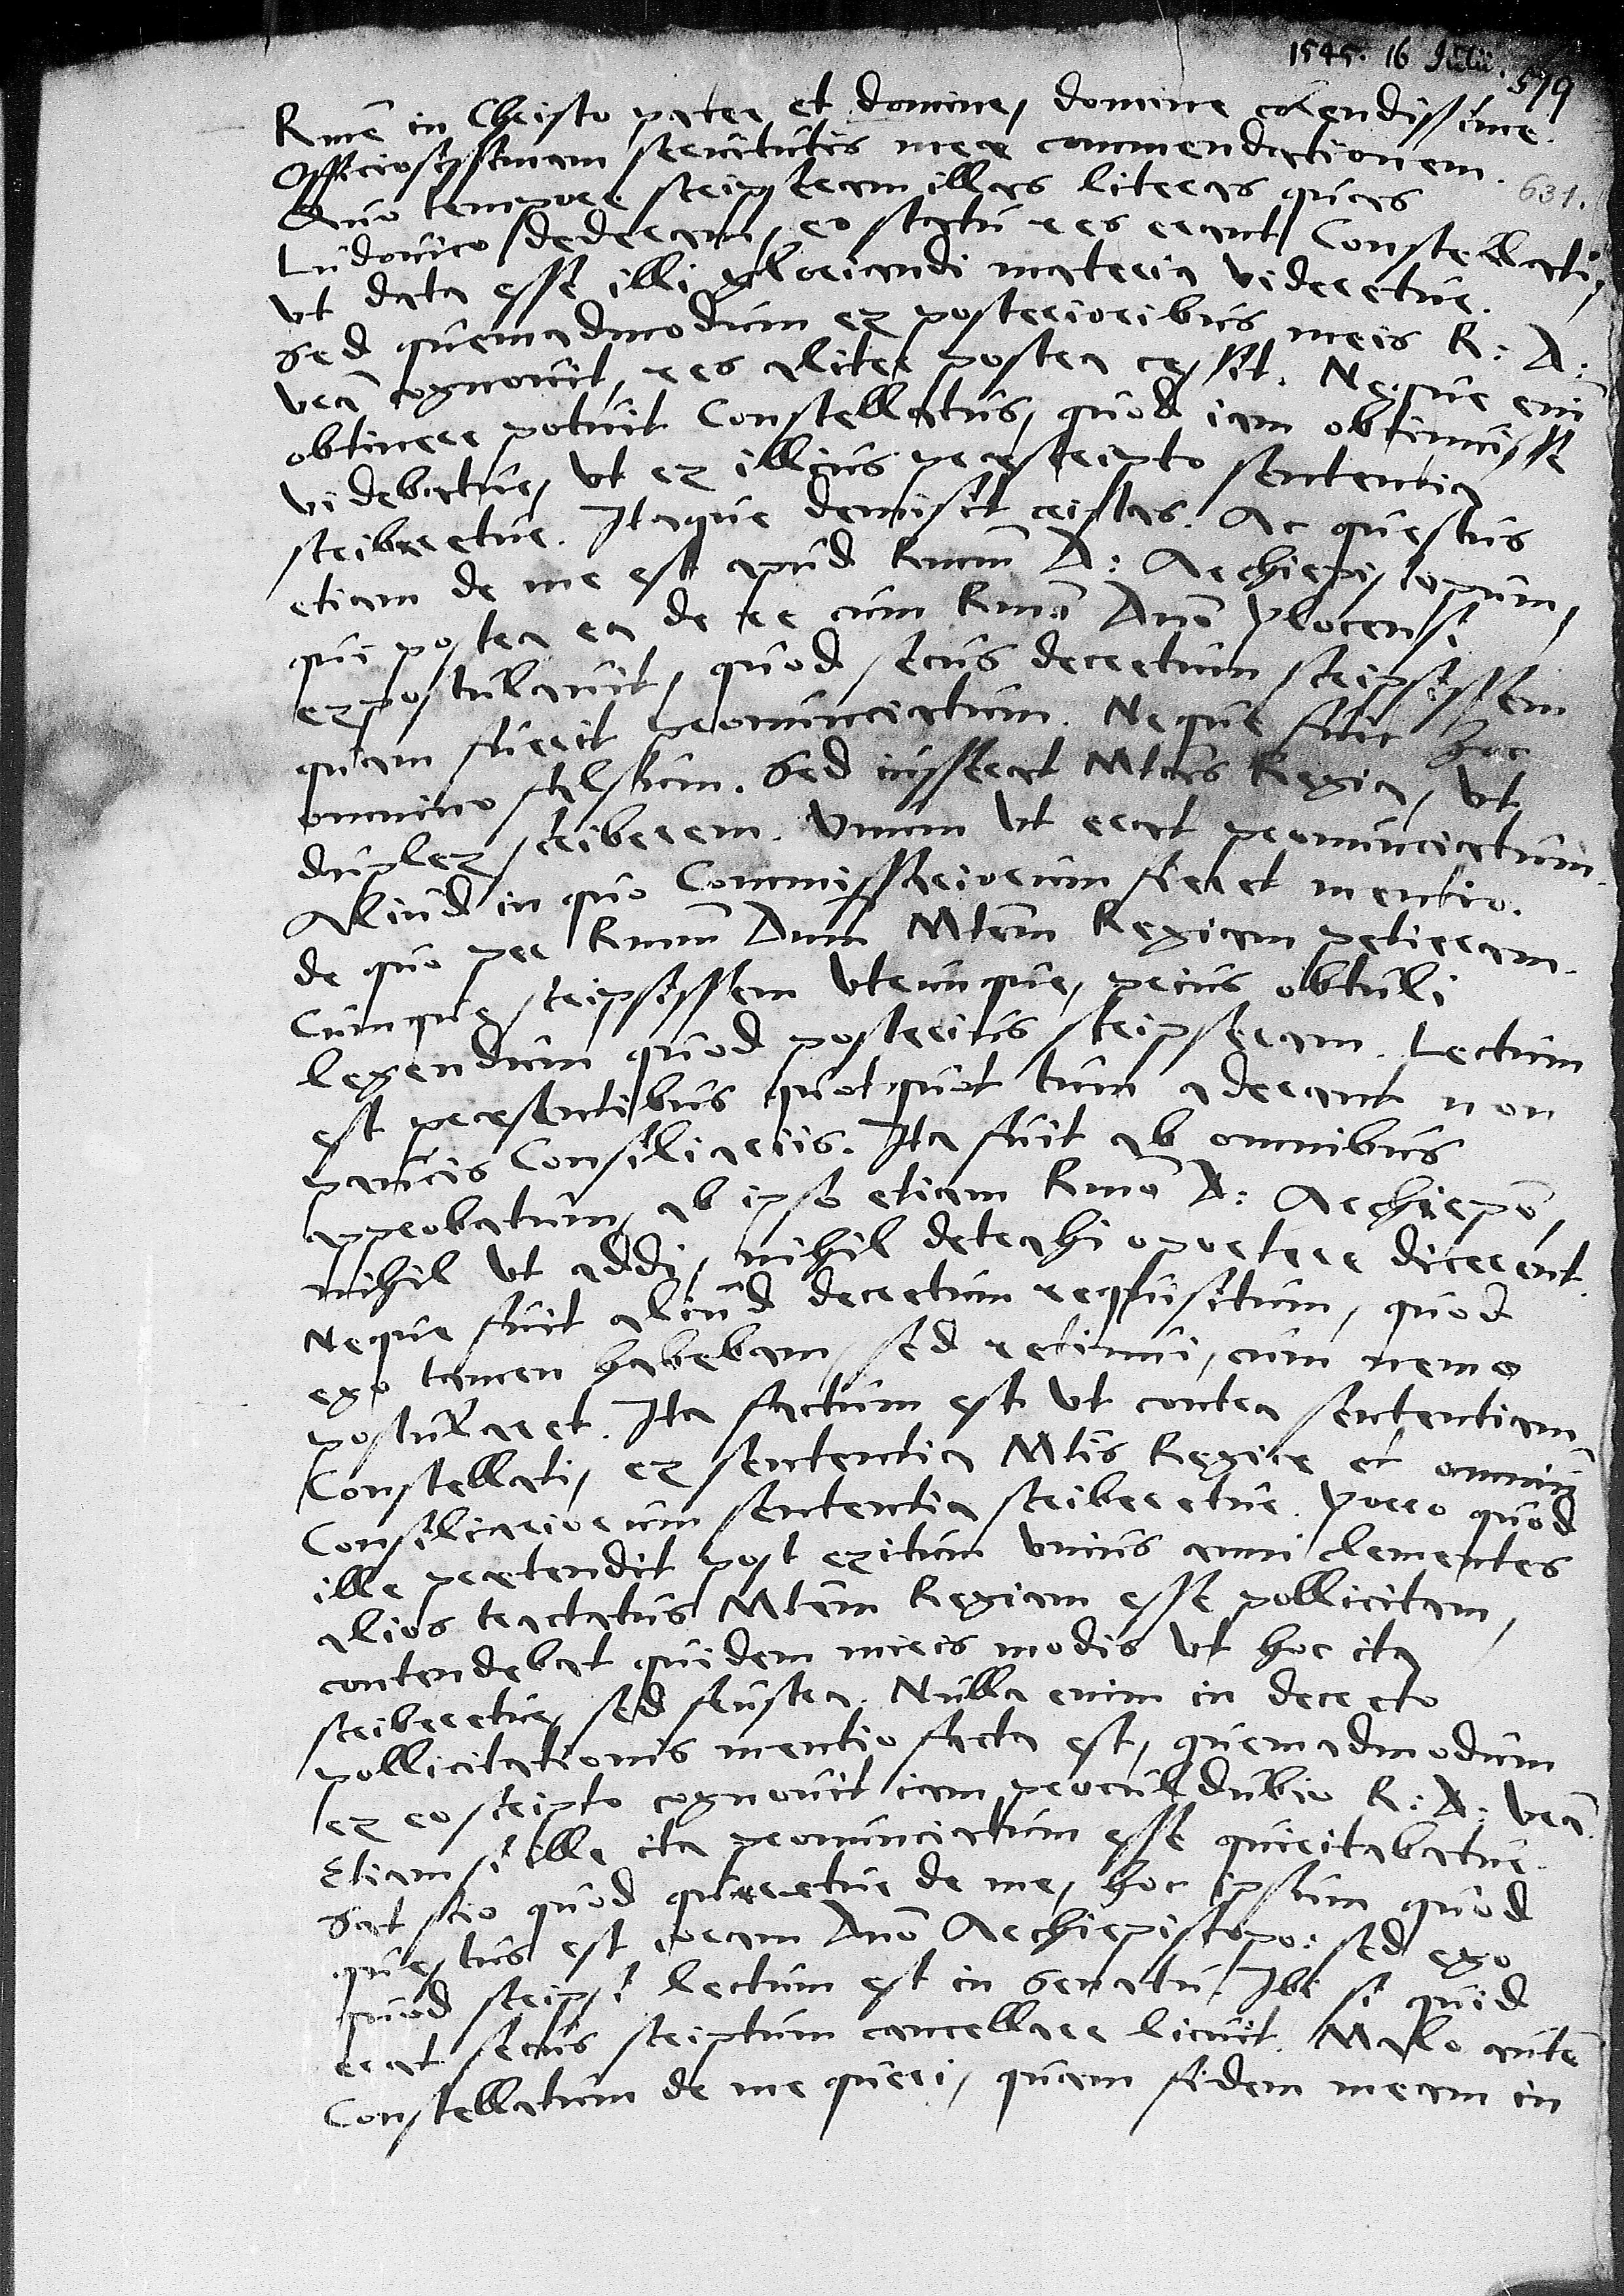 1545. 16 Julii. 579
Rme in Christo pater et domine, domine colendissime.
Officiosissimam servitutis mee commendationem.
631.
Quo tempore scripseram illas literas quas
Ludovico dederam, eo statu res erant Constellati,
ut data esse illi gloriandi materia videretur.
Sed quemadmodum ex posterioribus meis R: D:
vra cognovit, res aliter postea cessit. Neque eni
obtinere potuit Constellatus, quod iam obtinuisse
videbatur, ut ex illius prescripto sententia
scriberetur. Itaque demisit cristas. Ac questus
etiam de me est apud Rmum D: Archiepiscopum,
qui postea ea de re cum Rmo Dno Plocensi
expostulavit, quod secus decretum scripsissem
quam fuerit pronunciatum. Neque fuit hoc
omnino falsum. Sed iusserat Mtas Regia, ut
duplex scriberem. Unum ut erat pronunciatum.
Aliud in quo Commissariorum fieret mentio.
de quo per Rmum Dnum Mtem Regiam petieram.
Cumque scripsissem utrunque, prius obtuli
legendum quod posterius scripseram. Lectum
est presentibus quotquot tum aderant non
paucis Consiliariis. Ita fuit ab omnibus
approbatum, ab ipso etiam Rmo D: Archiepo,
nihil ut addi, nihil detrahi oportere dicerent.
Neque fuit aliud decretum requisitum, quod
ego tamen habebam, sed retinui, cum nemo
postularet. Ita factum est ut contra sententiam
Constellati, ex sententia Mtis Regie et omniu
Consiliariorum sententia scriberetur. Porro quod
ille pretendit post exitum unius anni clementes
alios tractatus Mtem Regiam esse pollicitam,
contendebat quidem miris modis ut hoc ita
scriberetur, sed frustra. Nulla enim in decreto
pollicitationis mentio facta est, quemadmodum
ex eo scripto cognovit iam proculdubio R: D: vra.
Etiam si ille ita pronunciatum esse quiritabatur.
Sat scio quod queretur de me, hoc ipsum quod
questus est coram Dno Archiepiscopo: sed ego
quod scripsi lectum est in Senatu. Ibi si quid
erat secus scriptum cancellare licuit. Malo aute
Constellatum de me queri, quam fidem meam in